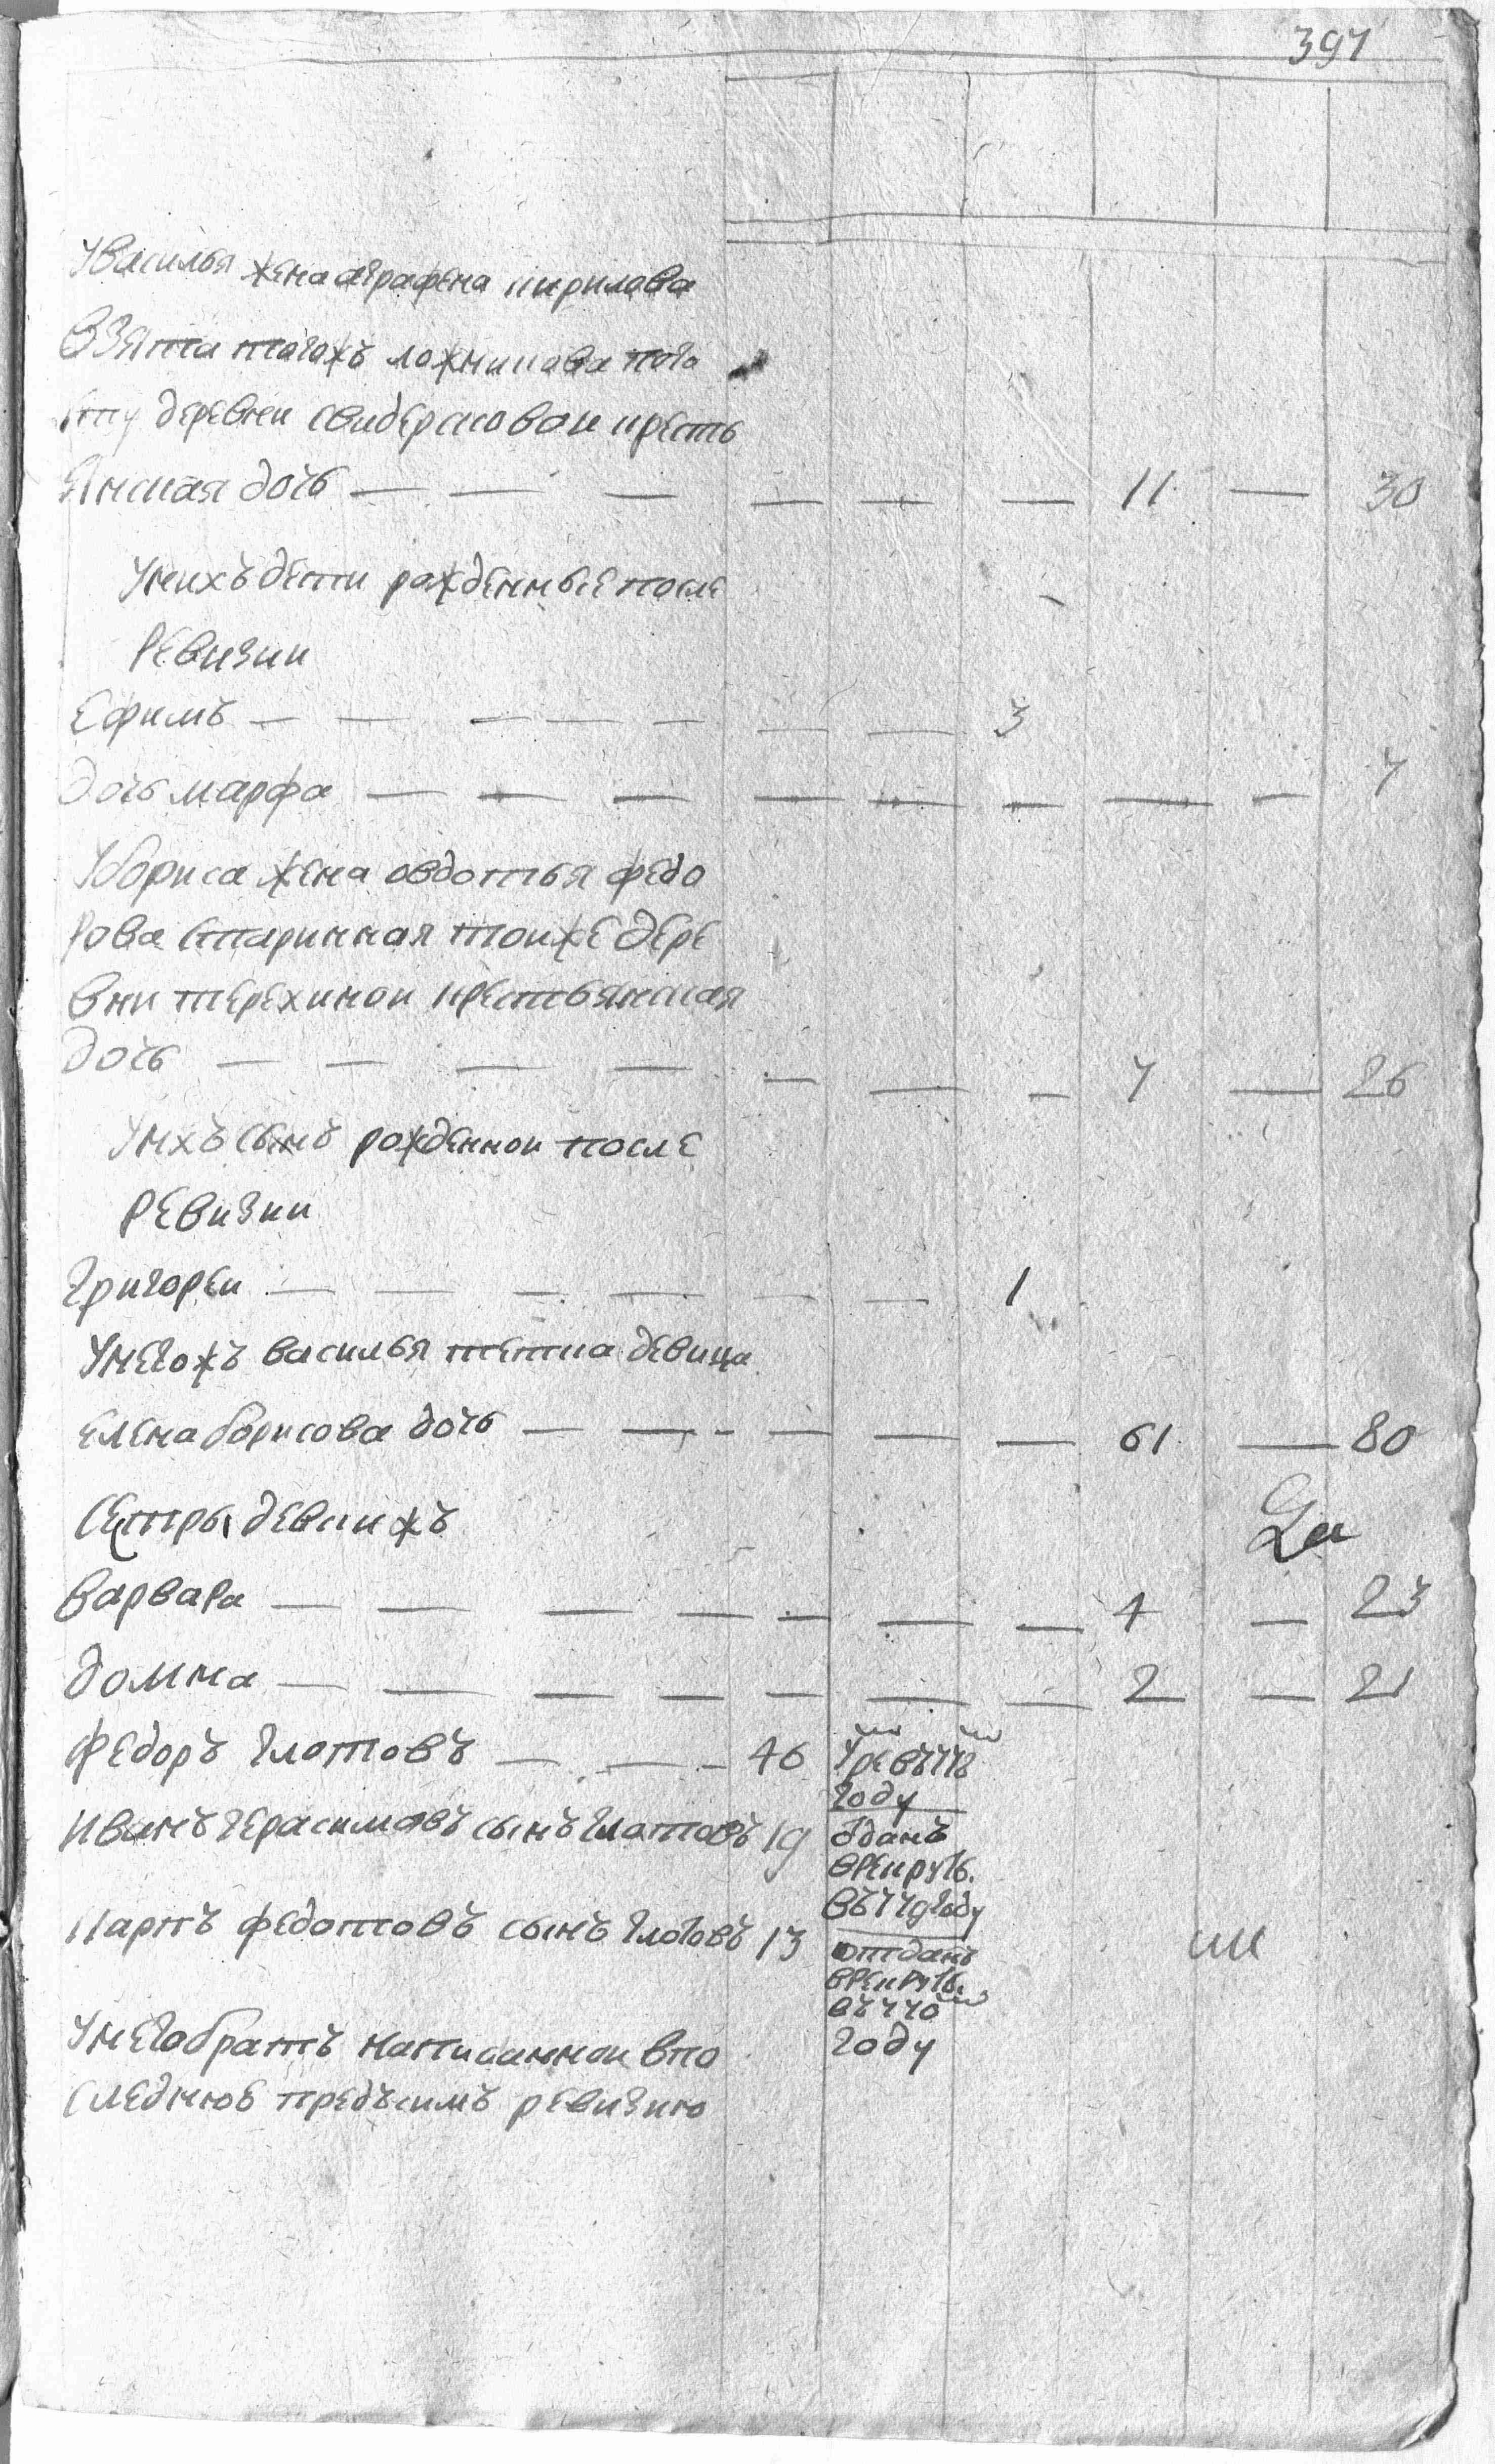 397
У василья жена аграфена кирилова
взята тогожъ ложникова пого
сту деревни свидерсковои кресть
янская дочь — — — — — — 11 — 30
У нихъ дети рожденные после
ревизии
Ефимъ — — — — — — — 3
дочь марфа — — — — — — — — 7
У бориса жена овдотья федо
рова старинная тоиже дере
вни терехинои крестьянская
дочь — — — — — — — 7 — 26
У нхъ сынъ рожденнои после
ревизии
Григореи — — — — — — 1
У негожъ василья тетка девица
елена борисова дочь — — - — — — 61 — 80
Сестры девкижъ
варвара — — — — — — — 4 — 23
домна — — — — — — — 2 — 21
Федоръ Глотовъ — — - 46
году
Иванъ герасимовъ сынъ Глотовъ 19 ѿданъ
врекруты.
году
Карпъ федотовъ сынъ Глотовъ 13 отданъ
врекруты.
году
У него братъ написаннои впо
следнюе предъсимъ ревизию